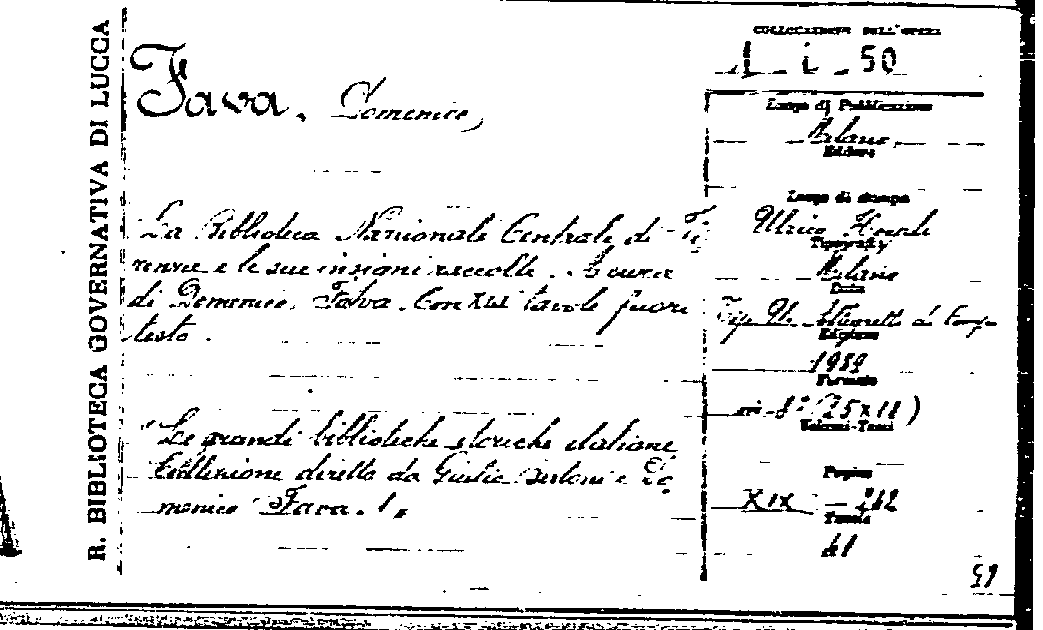 R. BIBLIOTECA GOVERNATIVA DI LUCCA
Fava, Domenico,
La Biblioteca Nazionale Centrale di Fi
renze e le sue insigni raccolte. A cura
di Domenico Fava. Con XLI tavole fuori
testo.
"Le grandi biblioteche storiche italiane
Collezione diretta da Giulio Bertoni e Do
menico Fava. 1"
COLLOCAZIONE DELL'OPERA
L i 50
Luogo di Pubblicazione
Milano
Editore
Luogo di stampa
Ulrico Hoepli
Tipografo
Milano
Data
Tip. U.
Edizione
Formato
in-8° (25x18)
Volumi-Tomi
Pagine
XIX - 242
Tavole
41
59